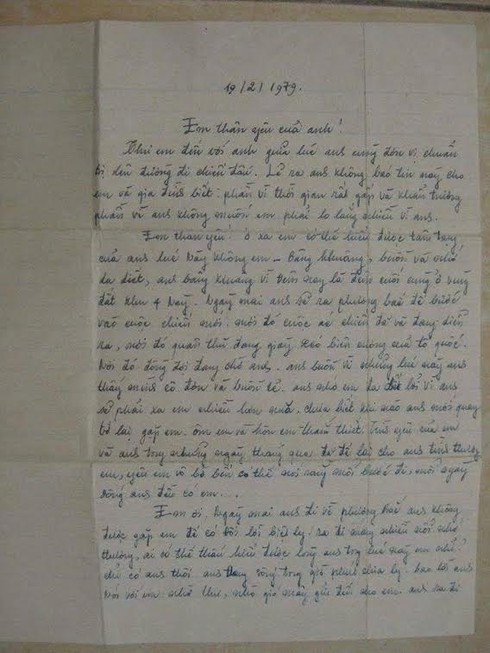 19/2/1979.
Em thân yêu của anh!
Khi em đến với anh giữa lúc ans cùng đơn vị chuẩn
bị lên đường đi chiến đấu. Lẽ ra ans không báo tin này cho
em và gia đình biết: phần vì thời gian rất gấp và khẩn trương
phần vì ans không muốn em phải lo lắng nhiều vì ans.
Em thân yêu! ở xa em có thể hiểu được tâm trạng
của ans lúc này không em - Bâng khuâng, buồn và nhớ
da diết, ans bâng khuâng vì đêm nay là đêm cuối cùng ở vùng
đất khu 4 này. Ngày mai ans sẽ ra phương bắc để bước
vào cuộc chiến mới, nơi đó cuộc chiến đã và đang diễn
ra, nơi đó quân thù đang giày xéo biên cương của tổ quốc.
Nơi đó đồng đội đang chờ ans. ans buồn vì những lúc này ans
thấy mình cô đơn và buồn tẻ. ans nhớ em da diết bởi vì ans
sẽ phải xa em nhiều hơn nữa. chưa biết khi nào ans mới quay
trở lại gặp em. ôm em và hôn em tha thiết. tình yêu của em
và ans trong những ngày tháng qua đã để lại cho ans tình thương
em, yêu em vô bờ bến có thể nói rằng mỗi bước đi, mỗi ngày
sống ans đều có em...
Em ơi. Ngày mai ans đi về phương bắc ans không
được gặp em để có đôi lời biệt ly! ra đi mang nhiều nỗi nhớ
thương, ai có thể thấu hiểu được lòng ans trong lúc này em nhỉ!
chỉ có ans thôi. ans đang sống trong giờ phút chia ly. bao lời ans
nói với em nhờ thư, nhờ gió mây gửi đến cho em. ans ra đi